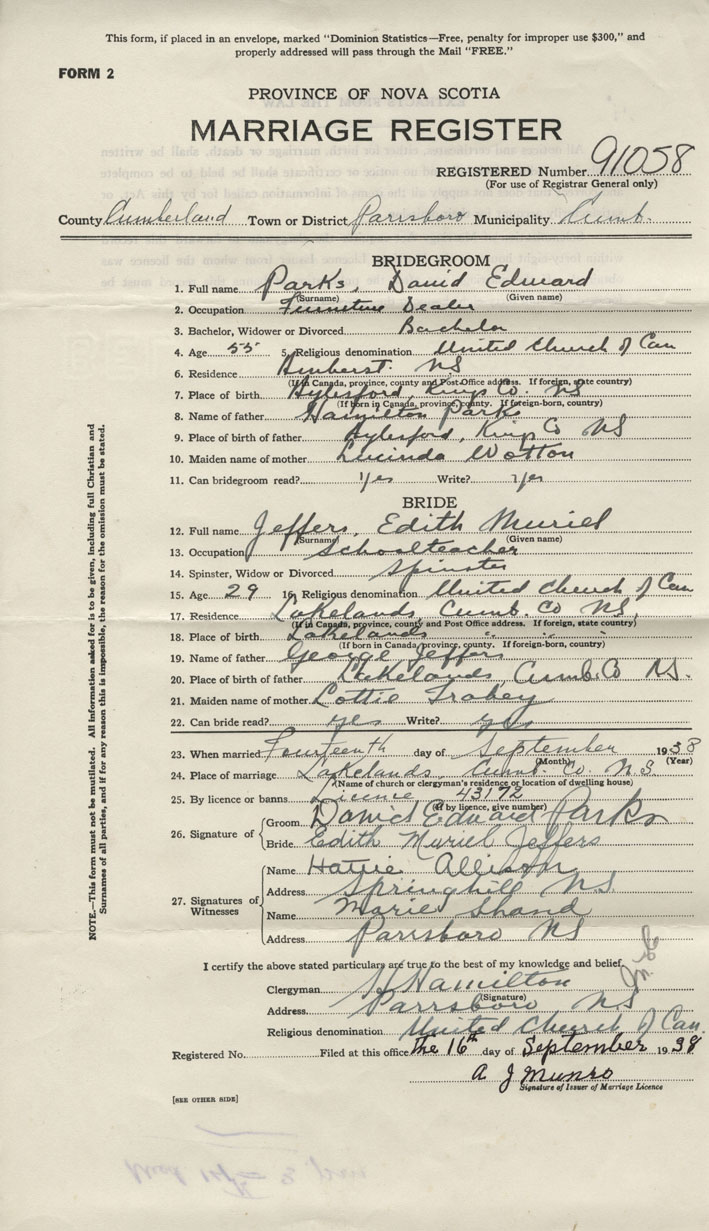 This form, if placed in an envelope, marked "Dominion Statistics—Free, penalty for improper use $300," and
properly addressed will pass through the Mail "FREE."
FORM 2
PROVINCE OF NOVA SCOTIA
MARRIAGE REGISTER
REGISTERED Number 91058
(For use of Registrar General only)
County Cumberland Town or District Parrsboro Municipality Cumb.
BRIDEGROOM
1. Full name Parks, David Edward
(Surname) (Given name)
2. Occupation Furniture Dealer
3. Bachelor, Widower or Divorced Bachelor
4. Age 55 5. Religious denomination United Church of Can
6. Residence Amherst NS
(If in Canada, province, county and Post Office address. If foreign, state country)
7. Place of birth Aylesford, Kings Co. NS
(If born in Canada, province, county. If foreign-born, country)
8. Name of father Hamilton Parks
9. Place of birth of father Aylesford, King Co NS
10. Maiden name of mother Lucinda Wotton
11. Can bridegroom read? Yes Write? Yes
BRIDE
12. Full name Jeffers, Edith Muriel
(Surname) (Given name)
13. Occupation Schoolteacher
14. Spinster, Widow or Divorced Spinster
15. Age 29 16. Religious denomination United Church of Can
17. Residence Lakelands, Cumb. Co NS.
(If in Canada, province, county and Post Office address. If foreign, state country)
18. Place of birth Lakelands " " "
(If born in Canada, province, county. If foreign-born, country)
19. Name of father George Jeffers
20. Place of birth of father Lakelands, Cumb. Co NS.
21. Maiden name of mother Lottie
22. Can bride read? yes Write? yes
23. When married Fourteenth day of September 1938
(Month) (Year)
24. Place of marriage Lakelands, Cumb. Co NS
(Name of church or clergyman's residence or location of dwelling house)
25. By licence or banns Licence 43172
(If by licence, give number)
26. Signature of Groom David Edward Parks
Bride Edith Muriel Jeffers
27. Signatures of Witnesses
Name Hattie Allison
Address Springhill NS
Name Marie Shand
Address Parrsboro NS
I certify the above stated particulars are true to the best of my knowledge and belief.
Clergyman Hamilton
(Signature)
Address Parrsboro NS
Religious denomination United Church of Can.
Registered No. Filed at this office the 16th day of September 1938
A J Munro
Signature of Issuer of Marriage Licence
[SEE OTHER SIDE]
NOTE.—This form must not be mutilated. All information asked for is to be given, including full Christian and
Surnames of all parties, and if for any reason this is impossible, the reason for the omission must be stated.